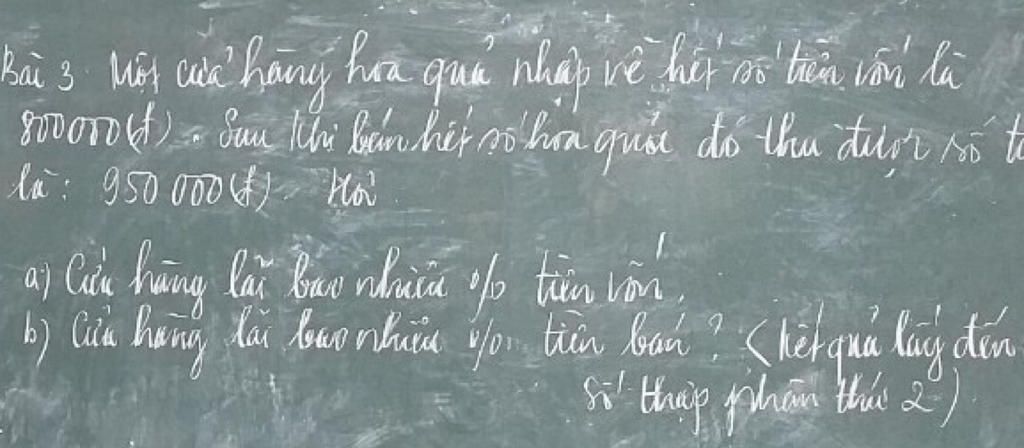 Bài 3. Một cửa hàng hoa quả nhập về hết số tiền vốn là
800000(đ). Sau khi bán hết số hoa quả đó thu được số
là: 950 000(đ). Hỏi
a) Cửa hàng lãi bao nhiêu % tiền vốn.
b) Cửa hàng lãi bao nhiêu % tiền bán? (kết quả lấy đến
số thập phân thứ 2)